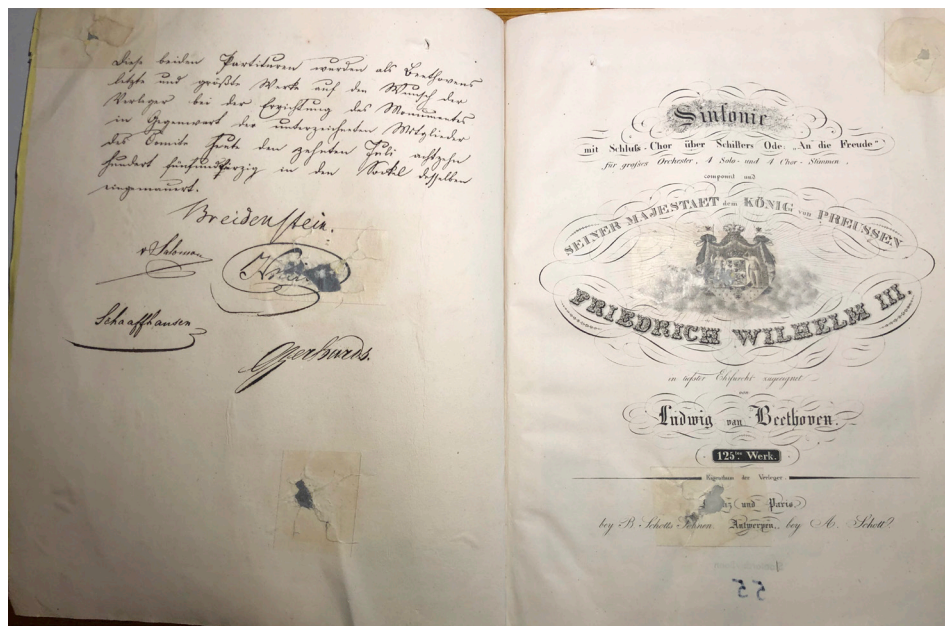 Diese beiden Partituren wurden als Beethovens
letzte und größte Werke auf den Wunsch der
Verleger bei der Errichtung des Monumentes
in Gegenwart der unterzeichneten Mitglieder
des Comite heute den zehnten Juli achtzehn
hundert fünfundvierzig in den Sockel desselben
eingemauert.
Breidenstein.
v Salomon
Schaaffhausen
Gerhards.
Sinfonie
mit Schluſs-Chor über Schillers Ode: „An die Freude“
für großes Orchester, 4 Solo- und 4 Chor-Stimmen,
componirt und
SEINER MAJESTAET dem KÖNIG von PREUSSEN
FRIEDRICH WILHELM III.
in tiefster Ehrfurcht zugeeignet
von
Ludwig van Beethoven.
125tes Werk.
Eigenthum der Verleger.
und Paris,
bey B. Schotts Söhnen. Antwerpen, bey A. Schott.
55